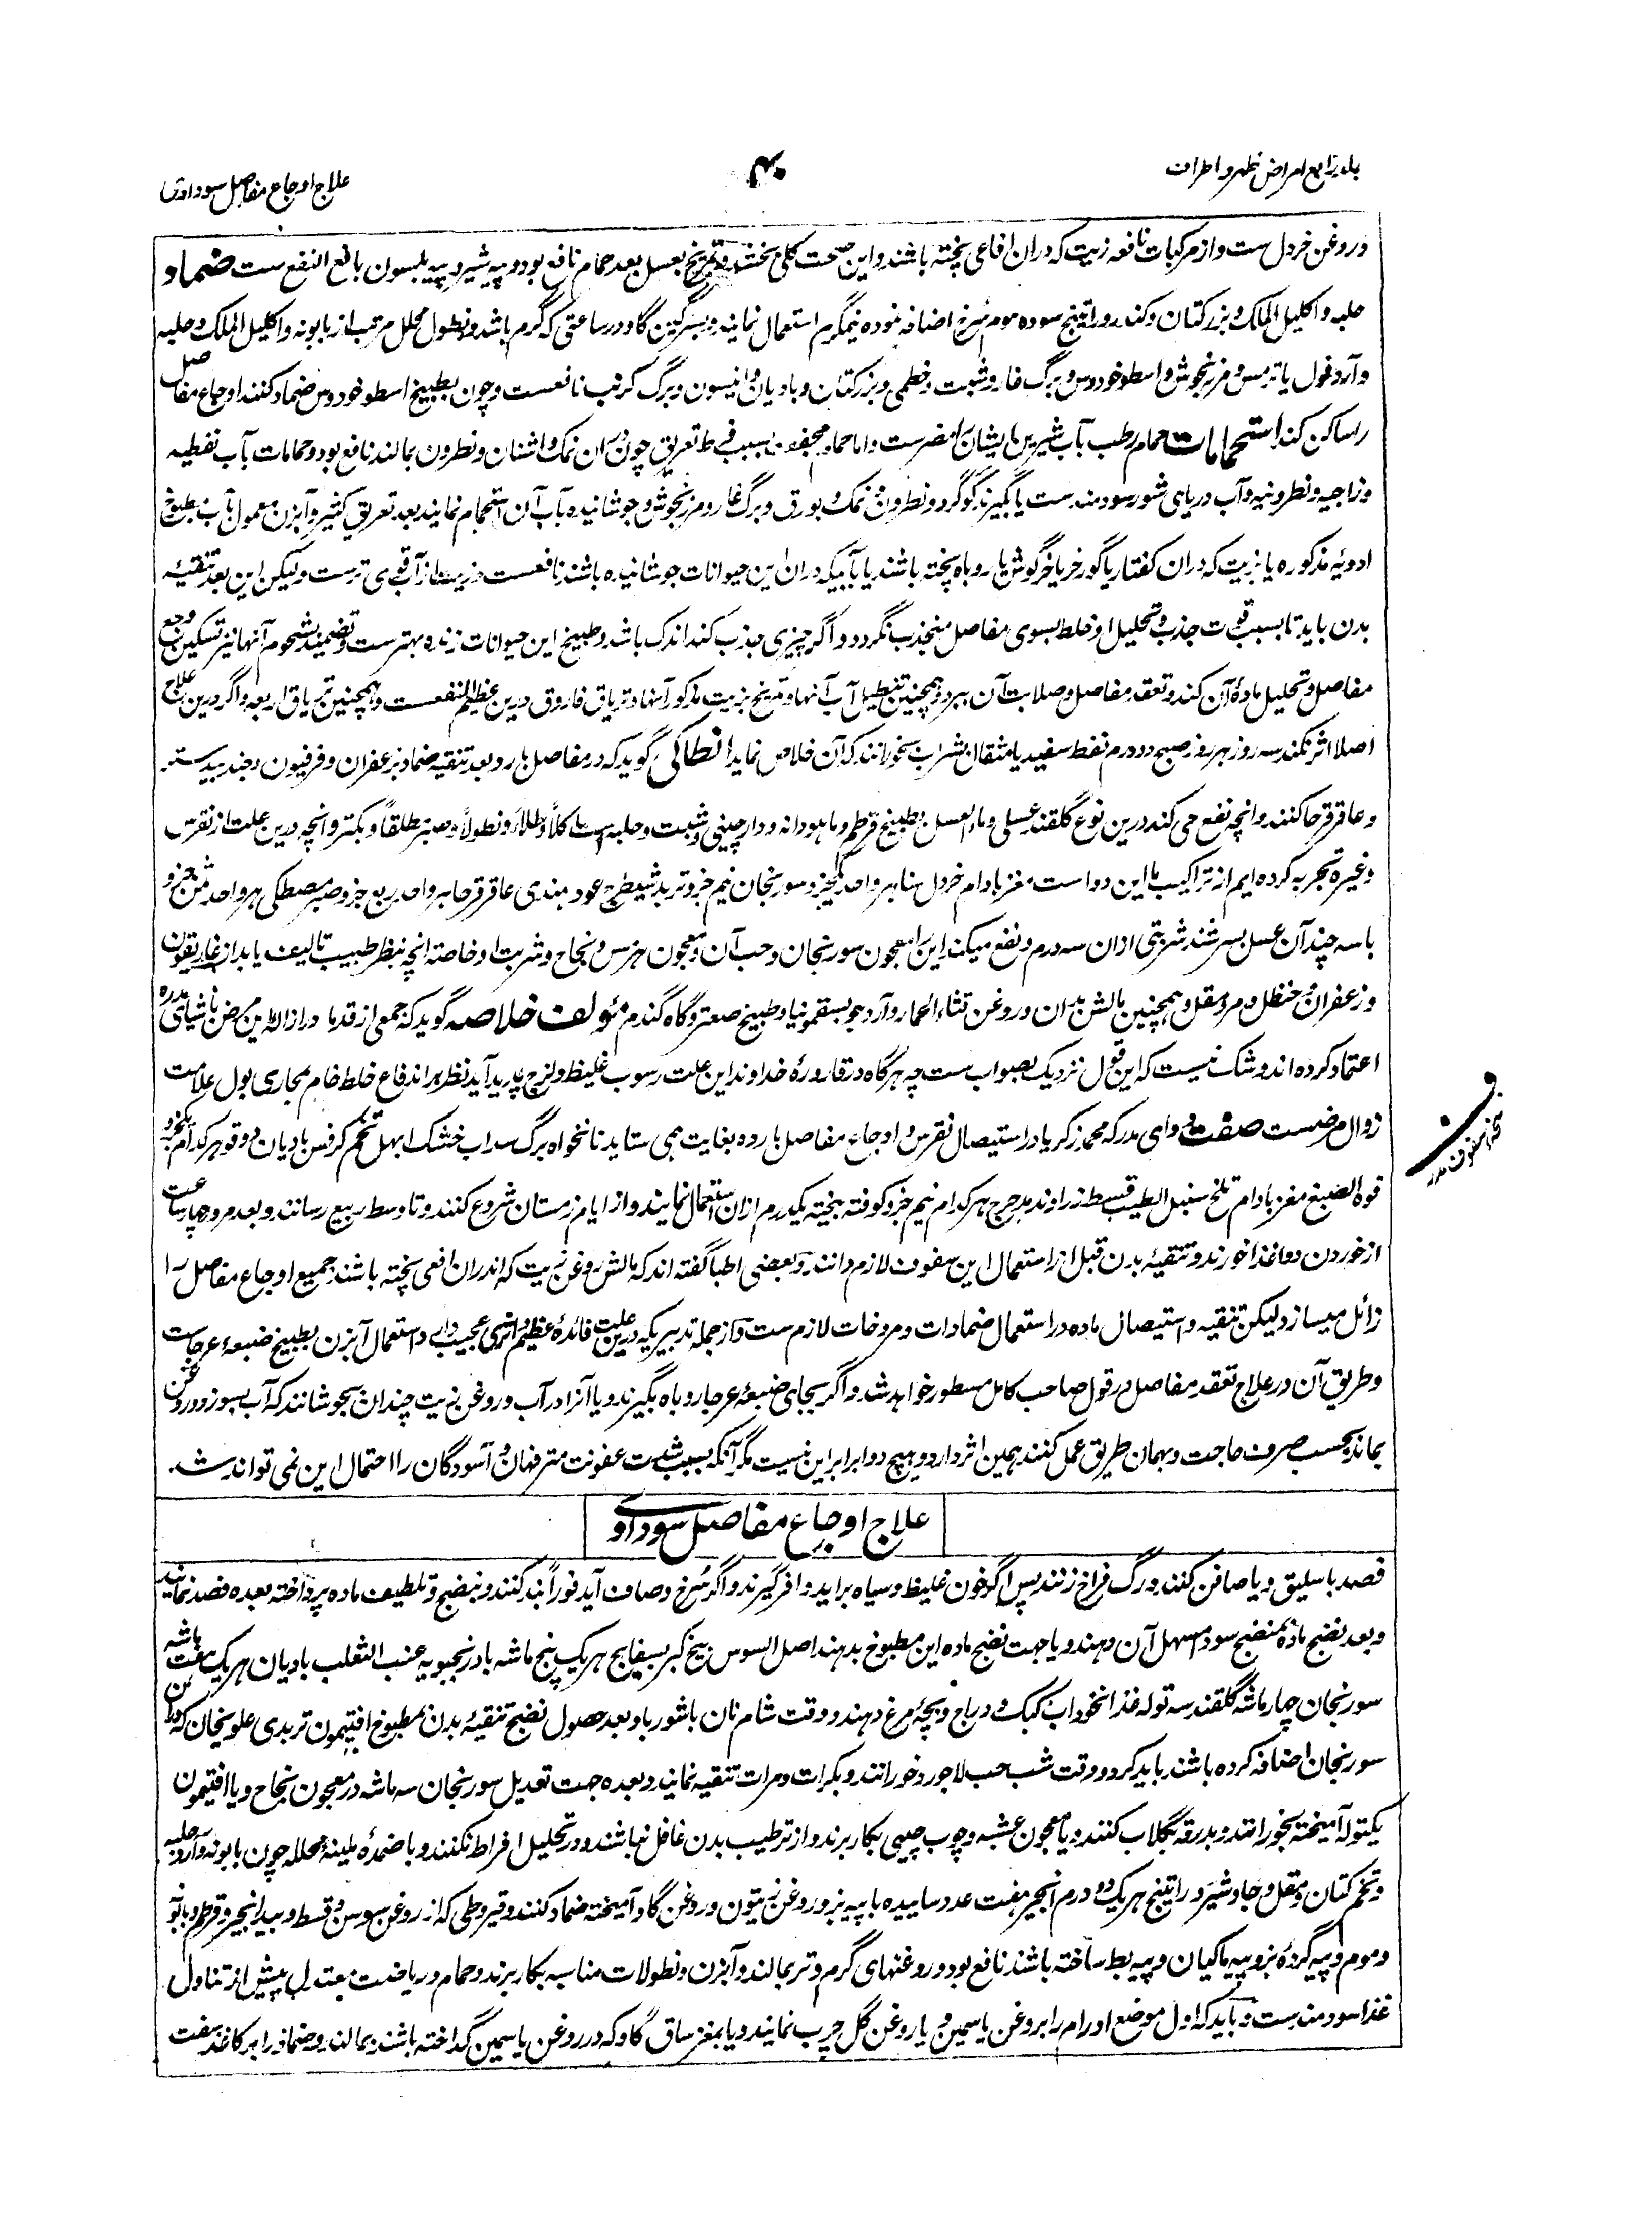 جلد رابع امراض ظهر و اطراف
علاج اوجاع مفاصل سوداوی
و روغن خردل ست و از مرکبات نافعه زیت که دران افاعی پخته باشند و این صحت کلی بخشد و تمریخ بعسل بعد حمام نافع بود و پیه شیر و پیه بلبسون بالغ النفع ست ضماد
حلبه و اکلیل الملک و بزر کتان و کندر و راتینج سوده موم سُرخ اضافه نموده نیمگرم استعمال نمایند و بسرگین گاو در ساعتی که گرم باشد و نطول محلل مرتب از بابونه و اکلیل الملک و حلبه
و آرد فول یا ترمس و مرزنجوش و اسطوخودوس و برگ غار و شبت و خطمی و بزر کتان و بادیان و انیسون و برگ کرنب نافعست و چون بطبیخ اسطوخودوس ضماد کنند اوجاع مفاصل
را ساکن کند استحمامات حمام رطب بآب شیرین بایشان را مضرست و اما حمام مجفف بسبب فرط تعریق چون دران نمک و اشنان و نطرون بمالند نافع بود و حمامات بآب نفطیه
و زاجیه و نطرونیه و آب دریای شور سودمندست یا بگیرند گوگرد و نطرون و نمک و بورق و برگ غار و مرزنجوش و جوشانیده بآب آن استحمام نمایند بعد تعریق کثیر و آبزن معمول بآب مطبوخ
ادویۀ مذکوره یا بزیت که دران کفتار یا گورخر یا خرگوش یا روباه پخته باشند یا بآبیکه دران این حیوانات جوشانیده باشند نافعست و زیت از آب قوی ترست و لیکن این بعد تنقیۀ
بدن باید تا بسبب قوت جذب و تحلیل او خلط بسوی مفاصل منجذب نگردد و اگر چیزی جذب کند اندک باشد و طبیخ این حیوانات زنده بهترست و تضمید بشحوم آنها نیز تسکین وجع
مفاصل و تحلیل مادۀ آن کند و تعقد مفاصل و صلابت آن ببرد و همچنین تنطیل آب آنها و تمریخ بزیت مذکور آنها و تریاق فاروق درین عظیم النفعست و همچنین تریاق اربعه و اگر درین علاج
اصلا اثر نکند سه روز هر روز صبح دو درم نفط سفید یا مثقال بشراب بخورانند که آن خلاص نماید انطاکی گوید که در مفاصل بارد بعد تنقیه ضماد بزعفران و فرفیون و جندبیدستر
و عاقرقرحا کنند و انچه نفع می کند درین نوع گلقند عسلی و ماءالعسل بطبیخ قرطم و ماهودانه و دارچینی و شبت و حلبه است اکلاً و طلاءً و نطولاً و صبر مطلقاً و بکتر و انچه درین علت از نقرس
و غیره تجربه کرده ایم از تراکیب ما این دواست مغز بادام خردل سنا هر واحد یکجزو سورنجان نیم جزو تربد شیطرج عود هندی عاقرقرحا هر واحد ربع جزو صبر مصطکی هر واحد ثمن جزو
با سه چند آن عسل بسرشند شربتی ازان سه درم و نفع میکند این را معجون سورنجان و حب آن و معجون هرمس و نجاح و شربت او خاصة انچه بنظر طبیب تالیف یابد از غاریقون
و زعفران و حنظل و مر و مقل و همچنین مالش بدان و روغن قثاء الحمار و آرد جو بسقمونیا و طبیخ صعتر و گاه گندم مؤلف خلاصه گوید که جمعی از قدما در ازالۀ این مرض باشیای مدره
اعتماد کرده اند و شک نیست که این قول نزدیک بصواب ست چه هرگاه در قارورۀ خداوند این علت رسوب غلیظ و لزج پدید آید نظر بر اندفاع خلط خام بمجاری بول علامت
زوال مرضست صفت دوای مدر که محمد زکریا در استیصال نقرس و اوجاع مفاصل بارده بغایت می ستاید نانخواه برگ سداب خشک ابهل تخم کرفس بادیان دوقو هر کدام یکجزو
فوه الصبغ مغز بادام تلخ سنبل الطیب قسط زراوند مدحرج هر کدام نیم جزو کوفته بیخته یکدرم ازان استعمال نمایند و از ایام زمستان شروع کنند و تا وسط ربیع رسانند و بعد مرور چهار ساعت
از خوردن دوا غذا خورند و تنقیۀ بدن قبل از استعمال این سفوف لازم دانند و بعضی اطبا گفته اند که مالش روغن زیت که اندران افعی پخته باشند جمیع اوجاع مفاصل را
زائل میسازد لیکن تنقیه و استیصال ماده در استعمال ضمادات و مروخات لازم ست و از جمله تدبیریکه درین علت فائدۀ عظیم و اثری عجیب دارد استعمال آبزن بطبیخ ضبعۀ عرجاست
و طریق آن در علاج تعقد مفاصل در قول صاحب کامل مسطور خواهد شد و اگر بجای ضبعۀ عرجا روباه بگیرند و یا آنرا در آب و روغن زیت چندان بجوشانند که آب بسوزد و روغن
بماند بحسب صرف حاجت و بهمان طریق عمل کنند همین اثر دارد و هیچ دوا برابر این نیست مگر آنکه بسبب شدت عفونت مترفهان و آسودگان را احتمال این نمی تواند شد
علاج اوجاع مفاصل سوداوی
فصد باسلیق و یا صافن کنند و رگ فراخ زنند پس اگر خون غلیظ و سیاه براید وافر گیرند و اگر سُرخ و صاف آید فوراً بند کنند و بنضج و تلطیف ماده پرداخته بعده فصد نمایند
و بعد نضج ماده بمنضج سودا مسهل آن دهند و یا جهت نضج ماده این مطبوخ بدهند اصل السوس بیخ کبر بسفایج هر یک پنج ماشه بادرنجبویه عنب الثعلب بادیان هر یک هفت ماشه
سورنجان چهار ماشه گلقند سه توله غذا نخوداب کبک و دراج و بچۀ مرغ دهند و وقت شام نان باشوربا و بعد حصول نضج تنقیۀ بدن بمطبوخ افتیمون تربدی علویخان که دران
سورنجان اضافه کرده باشند باید کرد و وقت شب حب لاجورد خورانند و بکرات و مرات تنقیه نمایند و بعده جهت تعدیل سورنجان سه ماشه در معجون نجاح و یا افتیمون
یکتوله آمیخته بخورانند و بدرقه بگلاب کنند و یا معجون عشبه و چوب چینی بکار برند و از ترطیب بدن غافل نباشند و در تحلیل افراط نکنند و باضمدۀ ملینۀ محلله چون بابونه و آرد حلبه
و تخم کتان و مقل و جاوشیر و راتینج هر یک دو درم انجیر هفت عدد ساییده با پیه بز و روغن زیتون و روغن گاو آمیخته ضماد کنند و قیروطی که از روغن سوسن و قسط و بیدانجیر و قرطم و بابونه
و موم و پیه گردۀ بز و پیه ماکیان و پیه بط ساخته باشند نافع بود و روغنهای گرم و تر بمالند و آبزن و نطولات مناسبه بکار برند و حمام و ریاضت معتدل پیش از تناول
غذا سودمندست و باید که اول موضع اورام را بروغن یاسمین و یا روغن گل چرب نمایند و یا بمغز ساق گاو که در روغن یاسمین گداخته باشند بمالند و ضماد را بر کاغذ سفت